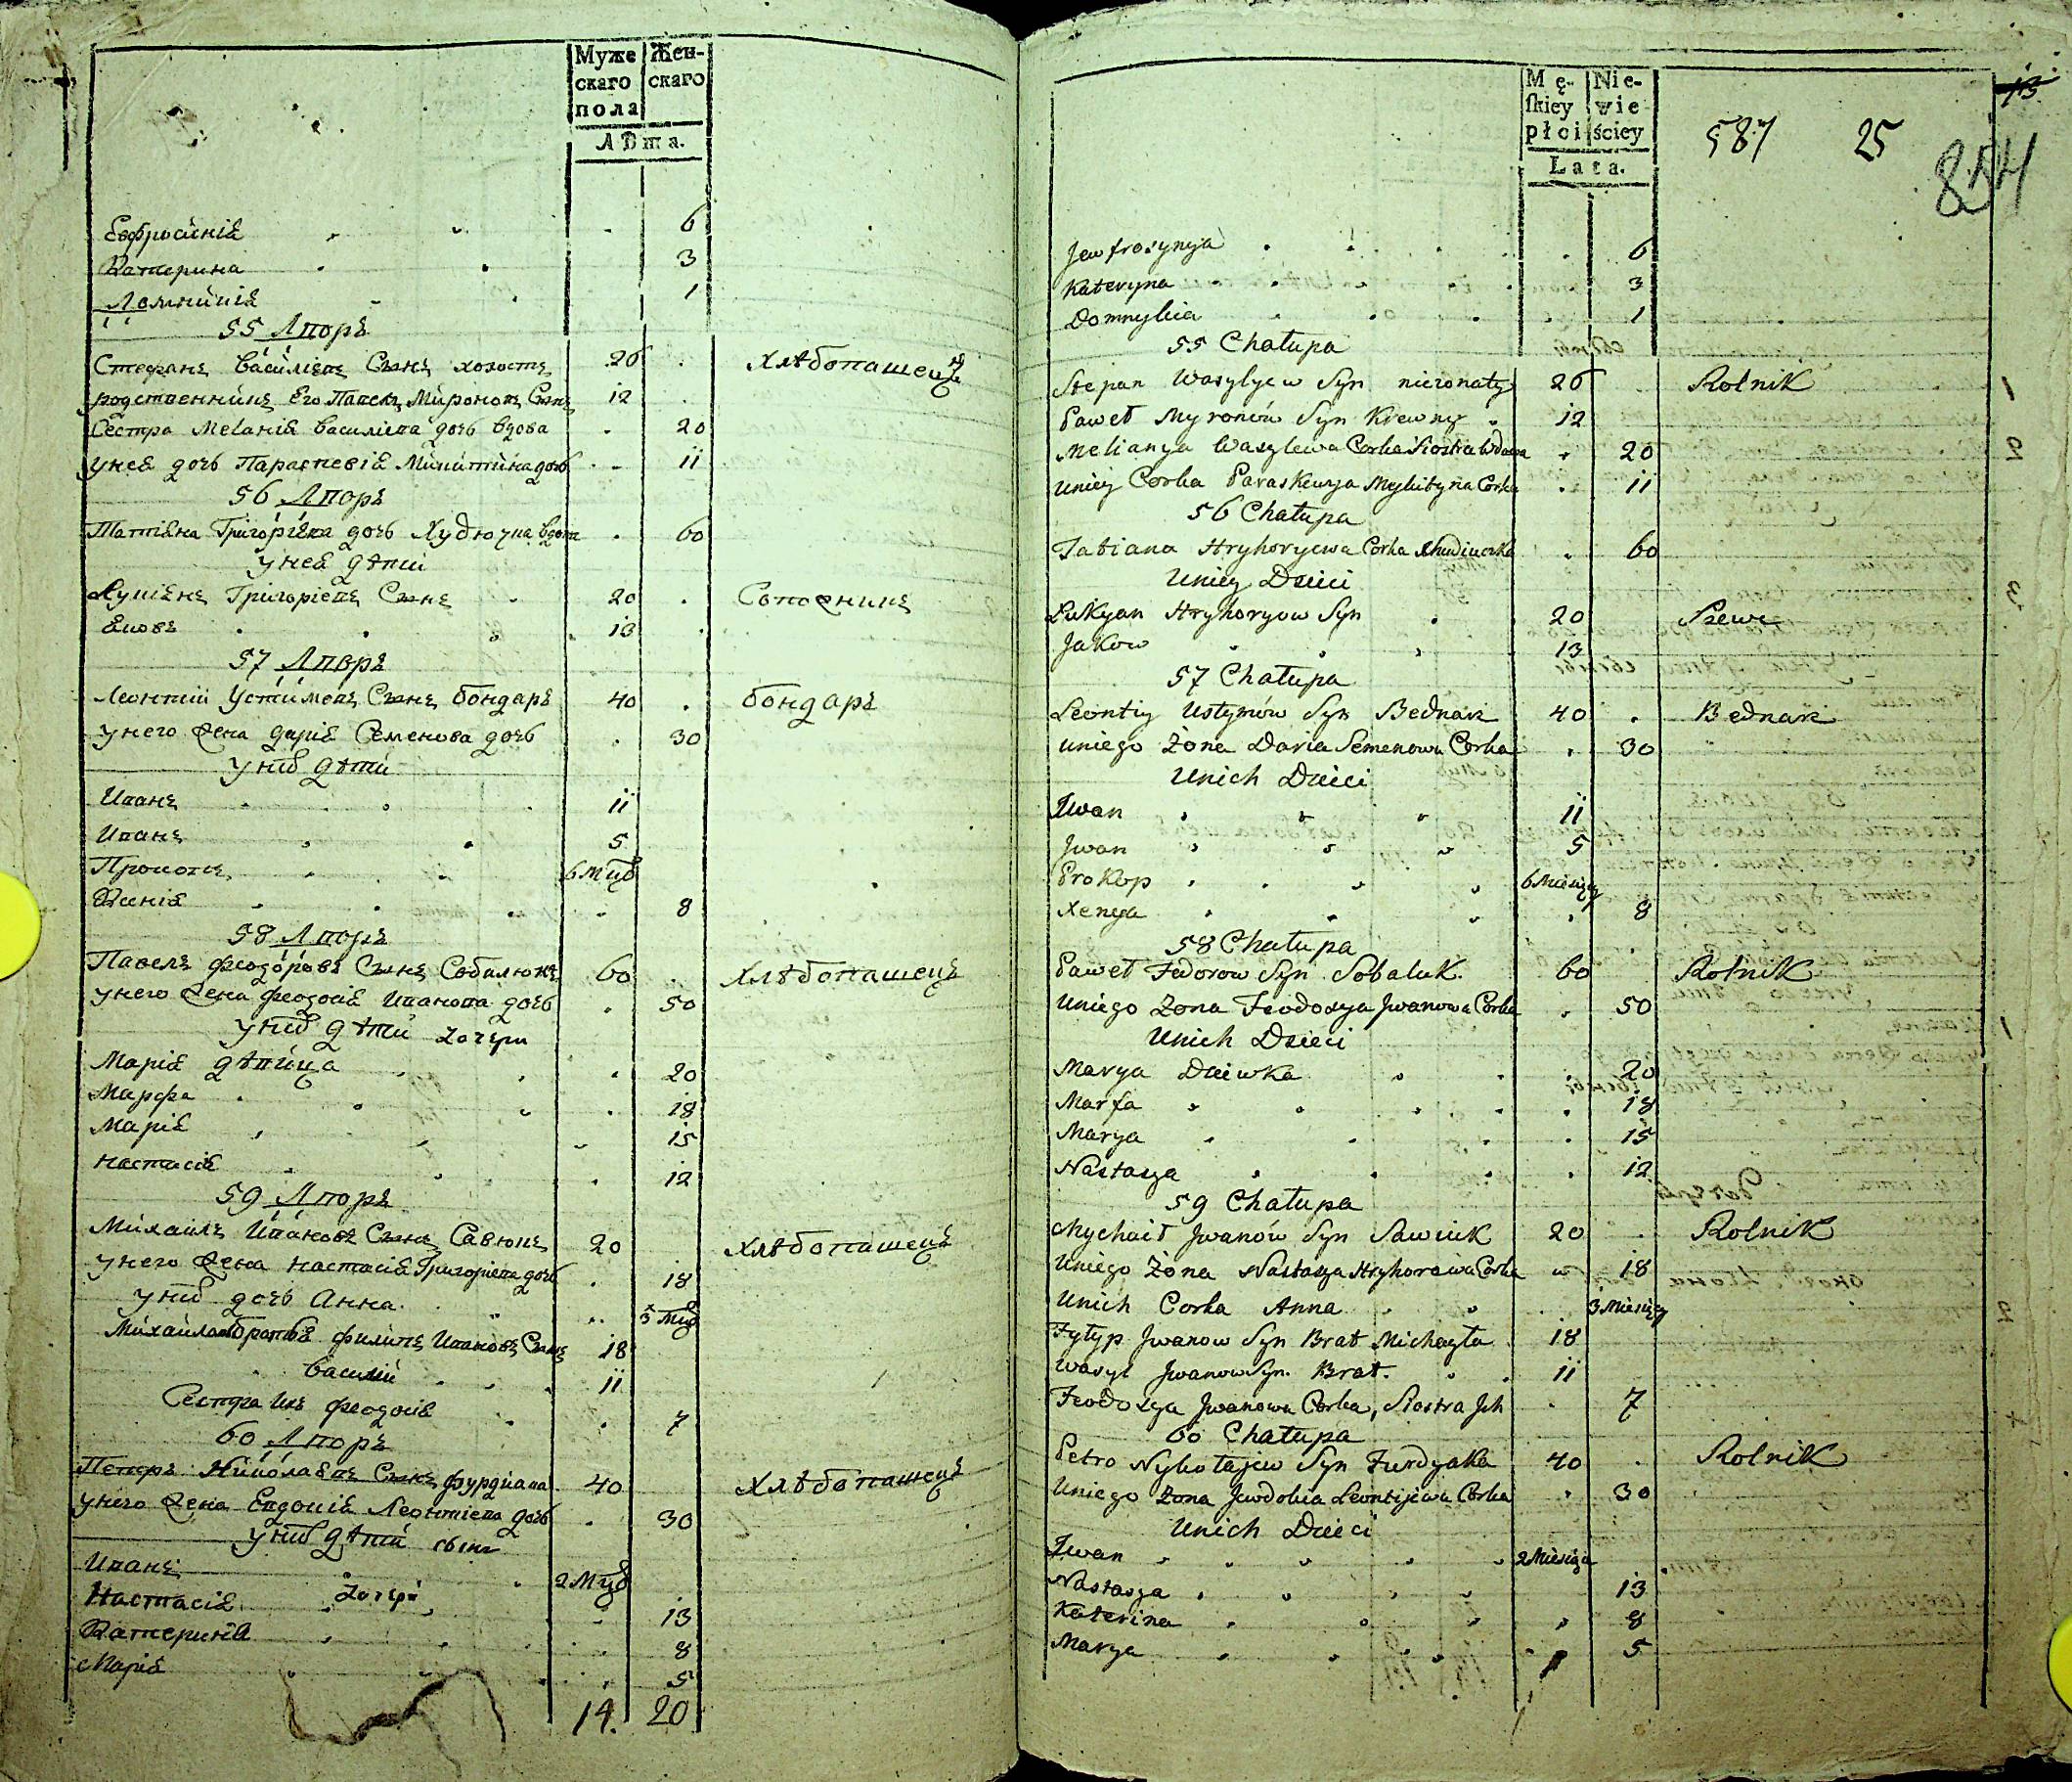 Муже
скаго
пола
Жен-
скаго
Лѣта.
Евфросинія 6
Катерина 3
Домникія 1
55 Дворъ
Стефанъ Василіевъ Сынъ холостъ 26 Хлѣбопашецъ
родственникъ Его Павелъ Миროновъ Сынъ 12
Сестра Меланія Василіева дочь вдова 20
у нея дочь Параскевія Микитина дочь 11
56 Дворъ
Татіяна Григоріева дочь Худючка вдова 60
у нея дѣти
Лукіянъ Григоріевъ Сынъ 20 Сапожникъ
Яковъ 13
57 Дворъ
Леонтій Устимовъ Сынъ бондаръ 40 бондаръ
у него жена Дарія Семенова дочь 30
у нихъ дѣти
Иванъ 11
Иванъ 5
Прокопъ 6 Мцъ
Ксенія 8
58 Дворъ
Павелъ Феодоровъ Сынъ Собалюкъ 60 Хлѣбопашецъ
у него жена Феодосія Иванова дочь 50
у нихъ дѣти дочери
Марія дѣвица 20
Марфа 18
Марія 15
Настасія 12
59 Дворъ
Михаилъ Ивановъ Сынъ Савюкъ 20 Хлѣбопашецъ
у него жена Настасія Григоріева дочь 18
у нихъ дочь Анна 3 Мцъ
Михайла братья Филипъ Ивановъ Сынъ 18
Василій 11
Сестра Ихъ Феодосія 7
60 Дворъ
Петръ Николаевъ Сынъ Фурдіака 40 Хлѣбопашецъ
у него жена Евдокія Леонтіева дочь 30
у нихъ дѣти сынъ
Иванъ 2 Мцъ
Настасія дочери 13
Катерина 8
Марія 5
14. 20
Mę-
ſkiey
płci
Nie-
wie
ściey
Lata.
587 25
13
854
Jewfrosynya 6
Kateryna 3
Domnykia 1
55 Chałupa
Stepan Wasylyew Syn nieżonaty 26 Rolnik
Paweł Myronów Syn Krewny 12
Melianya Wasylewa Corka Siostra Wdowa 20
Uniey Corka Paraskewya Mykityna Corka 11
56 Chałupa
Tatiana Hryhoryewa Corka Chudiuczka 60
Uniey Dzieci
Łukyan Hryhoryow Syn 20 Szewc
Jakow 13
57 Chałupa
Leontiy Ustymów Syn Bednarz 40 Bednarz
Uniego Żona Daria Semenowa Corka 30
Unich Dzieci
Iwan 11
Jwan 5
Prokop 6 Miesięcy
Xenya 8
58 Chałupa
Paweł Fedorow Syn Sobaluk 60 Rolnik
Uniego Żona Feodosya Jwanowa Corka 50
Unich Dzieci
Marya Dziewka 20
Marfa 18
Marya 15
Nastasya 12
59 Chałupa
Mychaił Jwanów Syn Sawiuk 20 Rolnik
Uniego Żona Nastasya Hryhorowa Corka 18
Unich Corka Anna 3 Miesięcy
Fyłyp Jwanow Syn Brat Michayła 18
Wasyl Jwanow Syn Brat. 11
Feodosya Jwanowa Corka, Siostra Jch 7
60 Chałupa
Petro Nykołajew Syn Furdyaka 40 Rolnik
Uniego Żona Jewdokia Leontijewa Corka 30
Unich Dzieci
Iwan 2 Miesiąca
Nastasya 13
Katerina 8
Marya 5